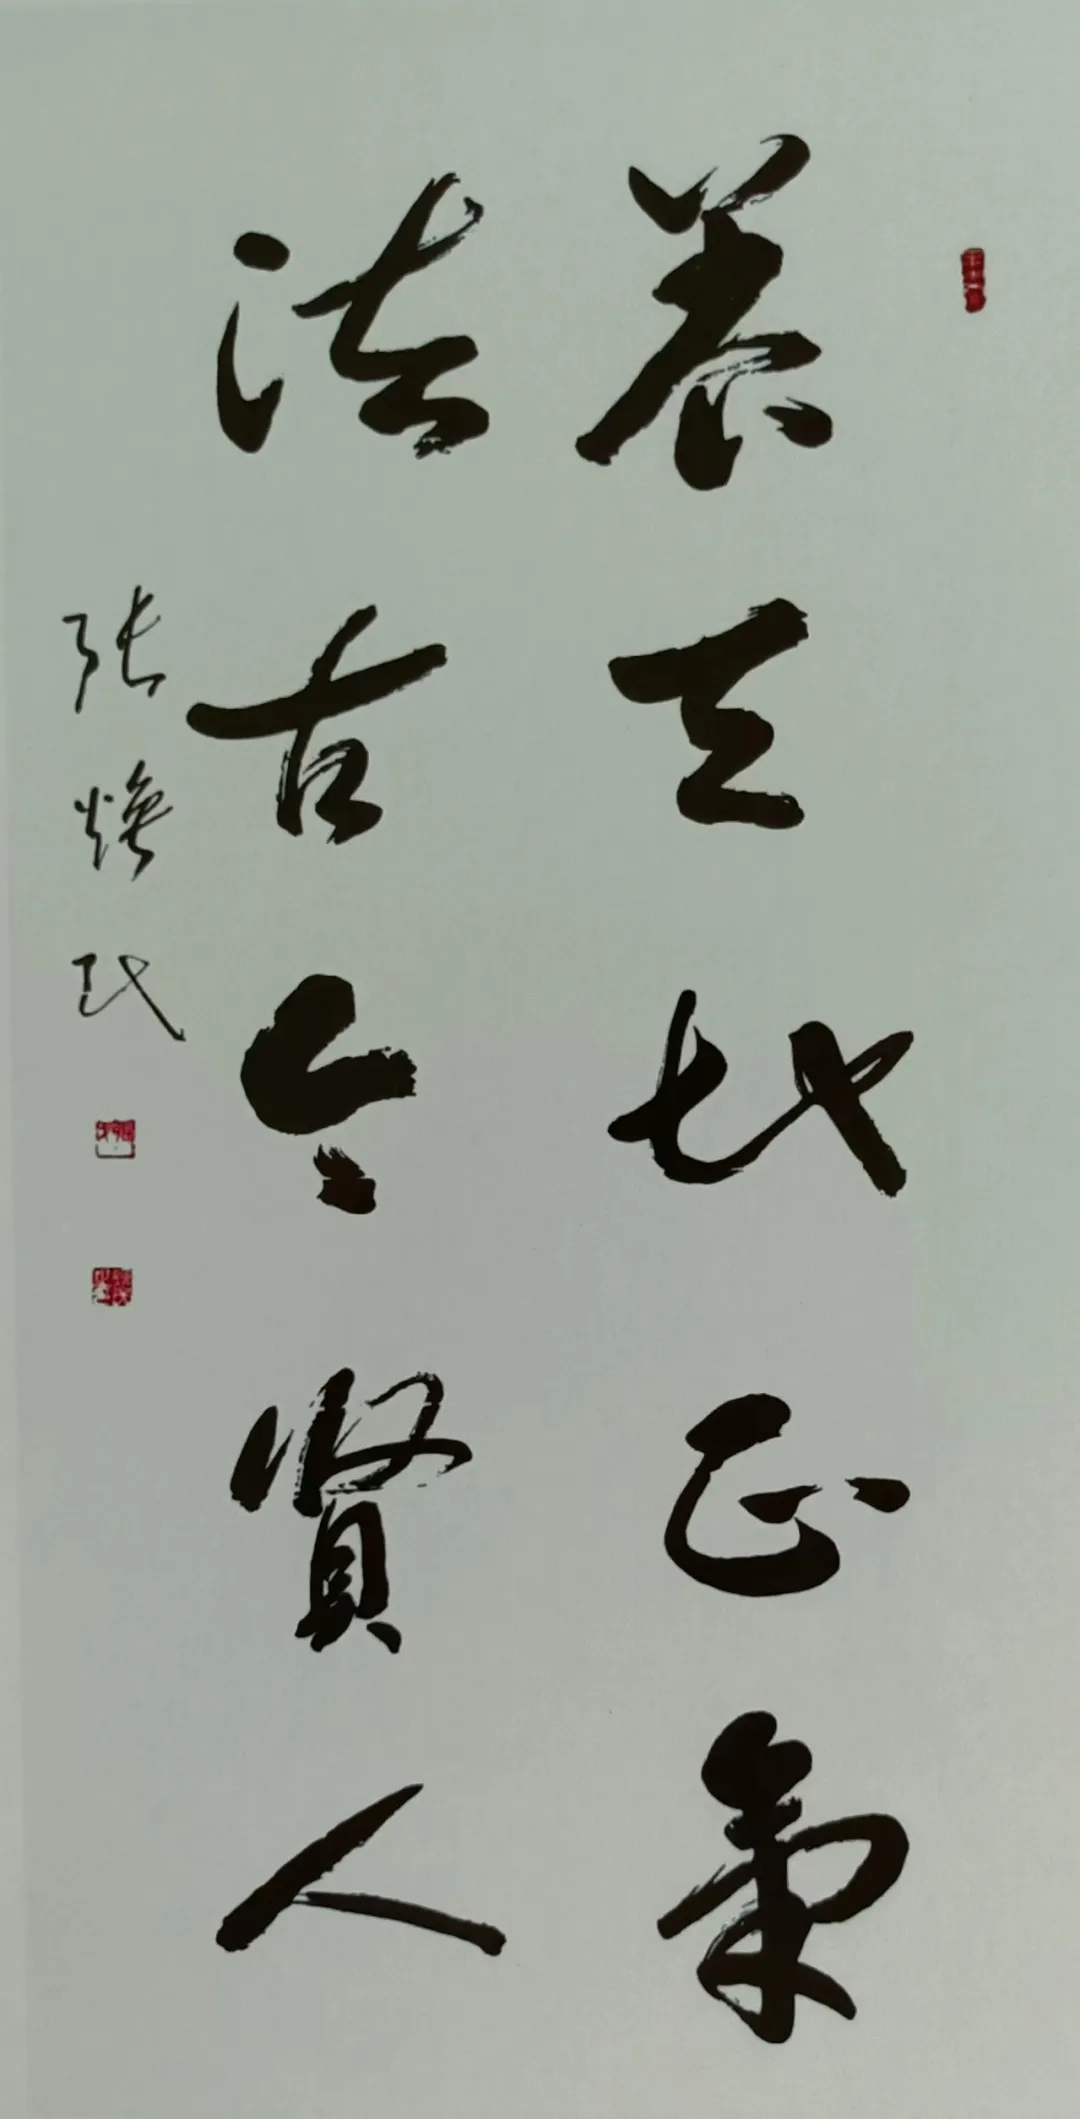 养天地正氣
法古今賢人
張煥民